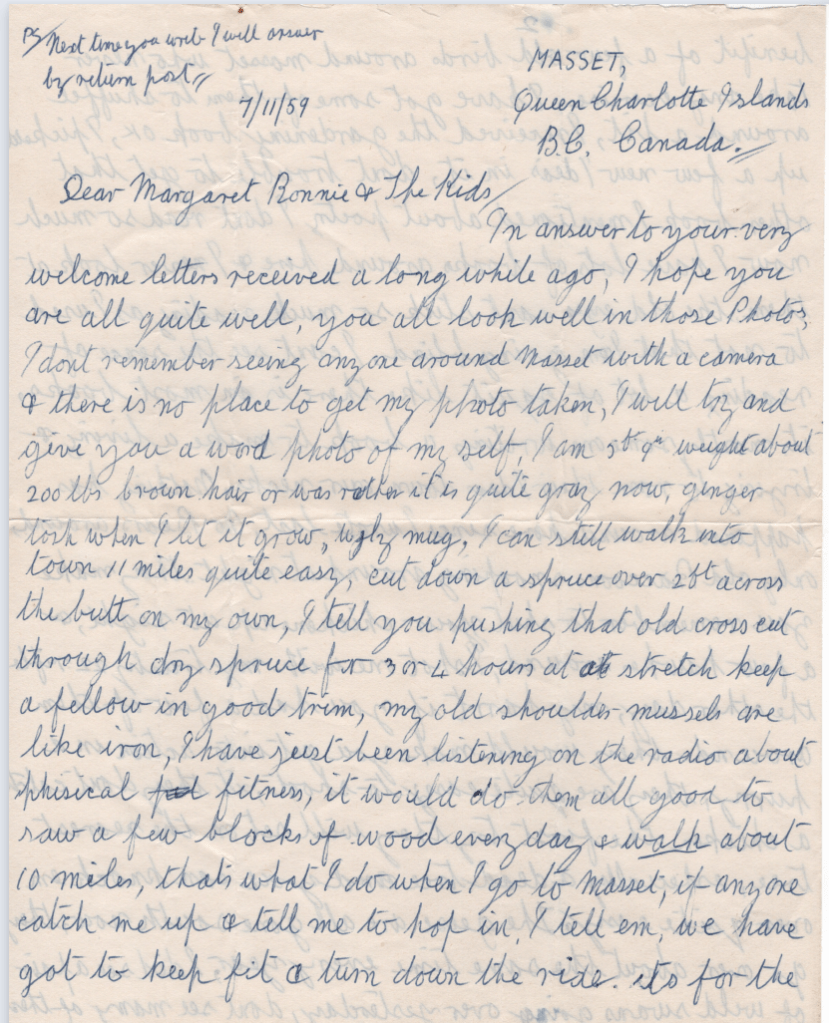 PS/ Next time you write I will answer
by return post //
7/11/59
MASSET,
Queen Charlotte Islands
B.C. Canada.//
Dear Margaret Ronnie & The Kids/
In answer to your very
welcome letters received a long while ago, I hope you
are all quite well, you all look well in those Photos,
I dont remember seeing anyone around Masset with a camera
& there is no place to get my photo taken, I will try and
give you a word photo of my self, I am 5ft 9in weight about
200 lbs brown hair or was rather it is quite gray now, ginger
tosh when I let it grow, ugly mug, I can still walk into
town 11 miles quite easy, cut down a spruce over 2ft across
the butt on my own, I tell you pushing that old cross cut
through dry spruce for 3 or 4 hours at a stretch keep
a fellow in good trim, my old shoulder mussels are
like iron, I have just been listening on the radio about
phisical fitness, it would do them all good to
saw a few blocks of wood every day & walk about
10 miles, thats what I do when I go to Masset, if anyone
catch me up & tell me to hop in, I tell em, we have
got to keep fit & turn down the ride. its for the